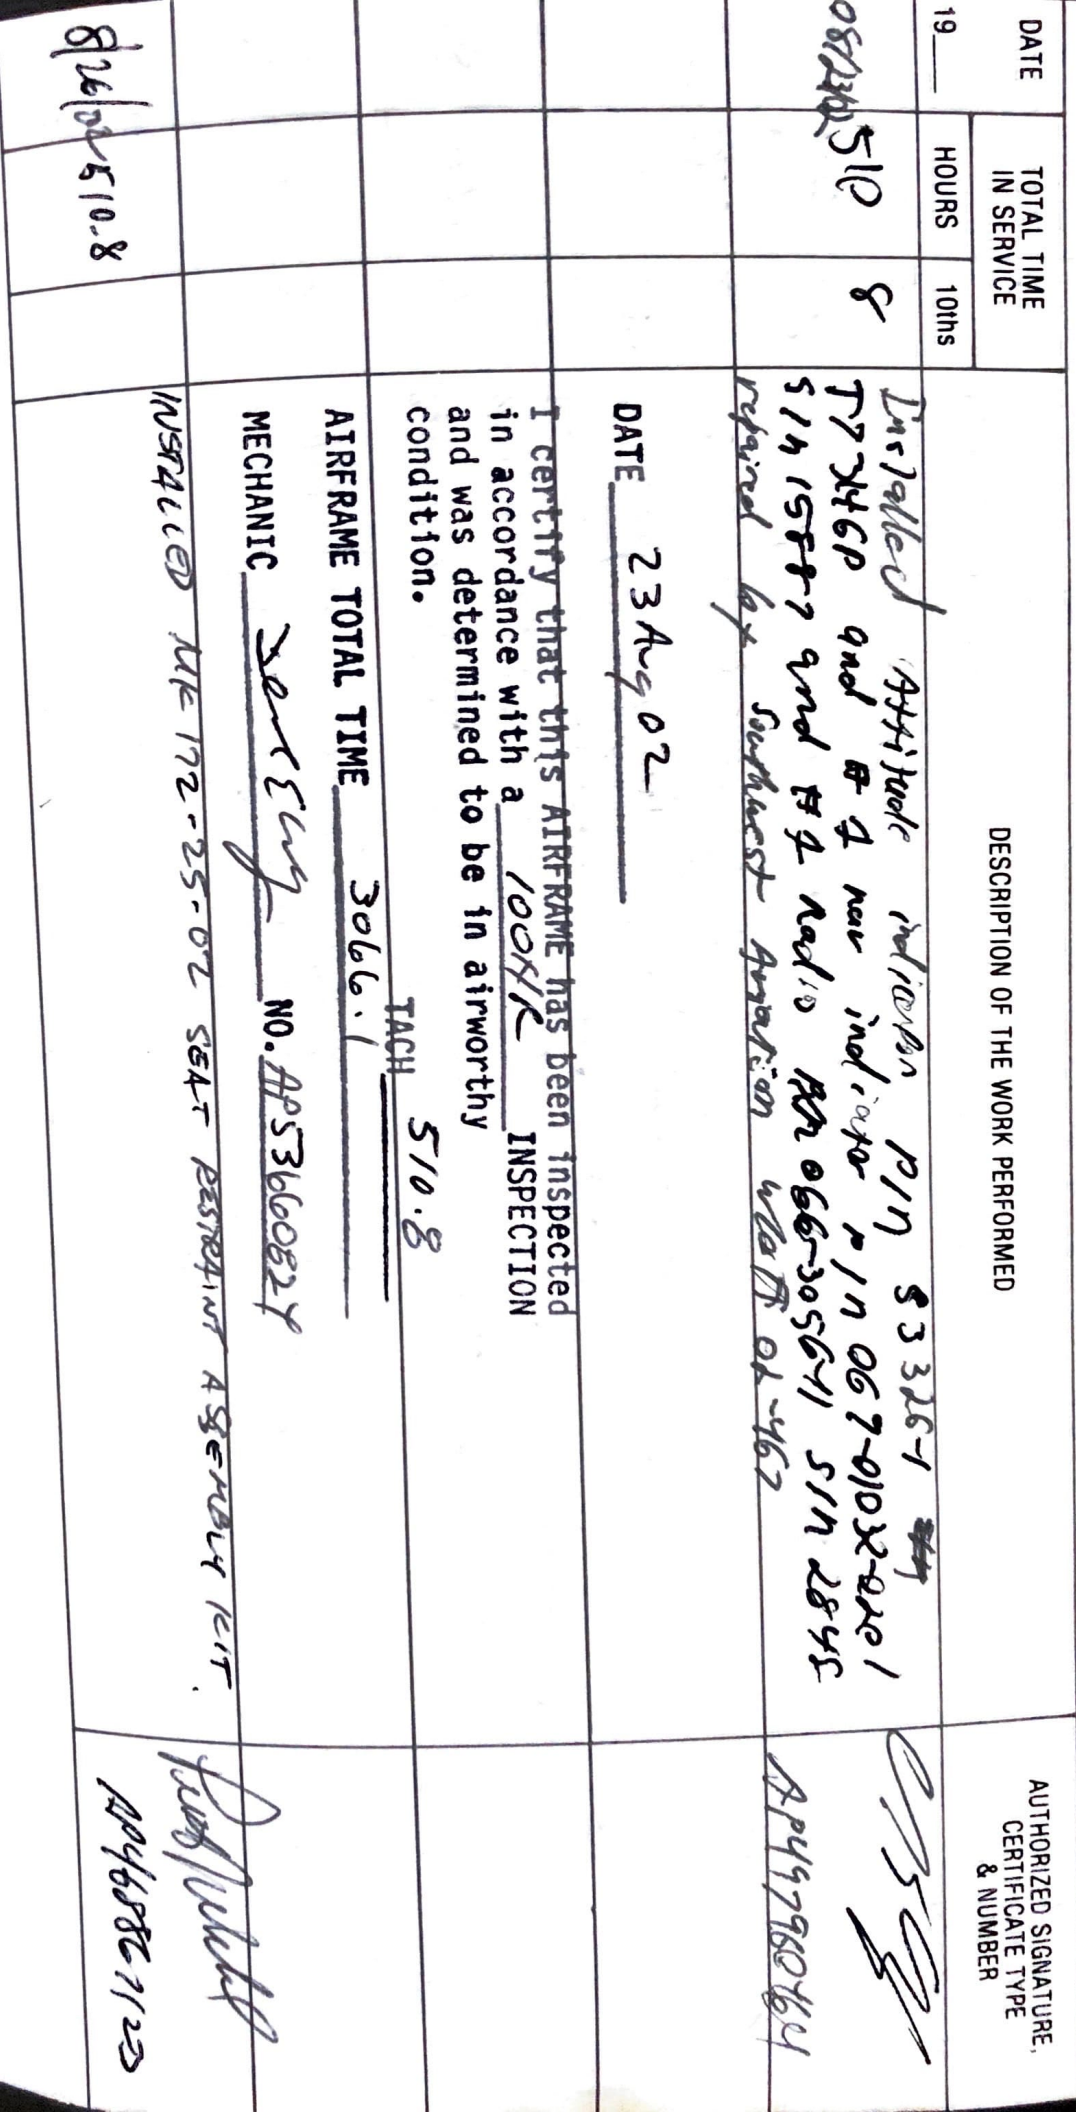 DATE
19__
TOTAL TIME
IN SERVICE
HOURS
10ths
DESCRIPTION OF THE WORK PERFORMED
AUTHORIZED SIGNATURE,
CERTIFICATE TYPE
& NUMBER
08/23/02 510 8 Installed Attitude indicator P/n 83326-1
T77346P and # 1 nav indicator P/n 067-01032-0201
S/n 15887 and # 1 Radio S/n 2845
repaired by Southwest Aviation 02-467
AP497960464
DATE 23 Aug 02
I certify that this AIRFRAME has been inspected
in accordance with a 100HR INSPECTION
and was determined to be in airworthy
condition.
TACH 510.8
AIRFRAME TOTAL TIME 3066.1
MECHANIC NO. AP53660824
8/26/02 510.8 INSTALLED MK 172-25-02 SEAT RESTRAINT ASSEMBLY KIT.